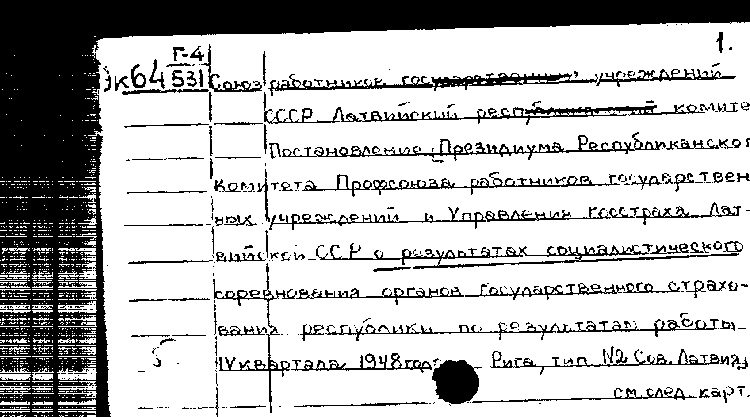 1.
Г-4
Эк64 531 Союз работников гос. учреждений
СССР Латвийский респ. комите
Постановление Президиума Республиканског
комитета Профсоюза работников государствен
ных учреждений и Управления госстраха Лат-
вийской ССР о результатах социалистического
соревнования органов государственного страхо-
вания республики по результатам работы
IV квартала 1948 год Рига, тип. №2 Сов. Латвия,
5
см. след. карт.